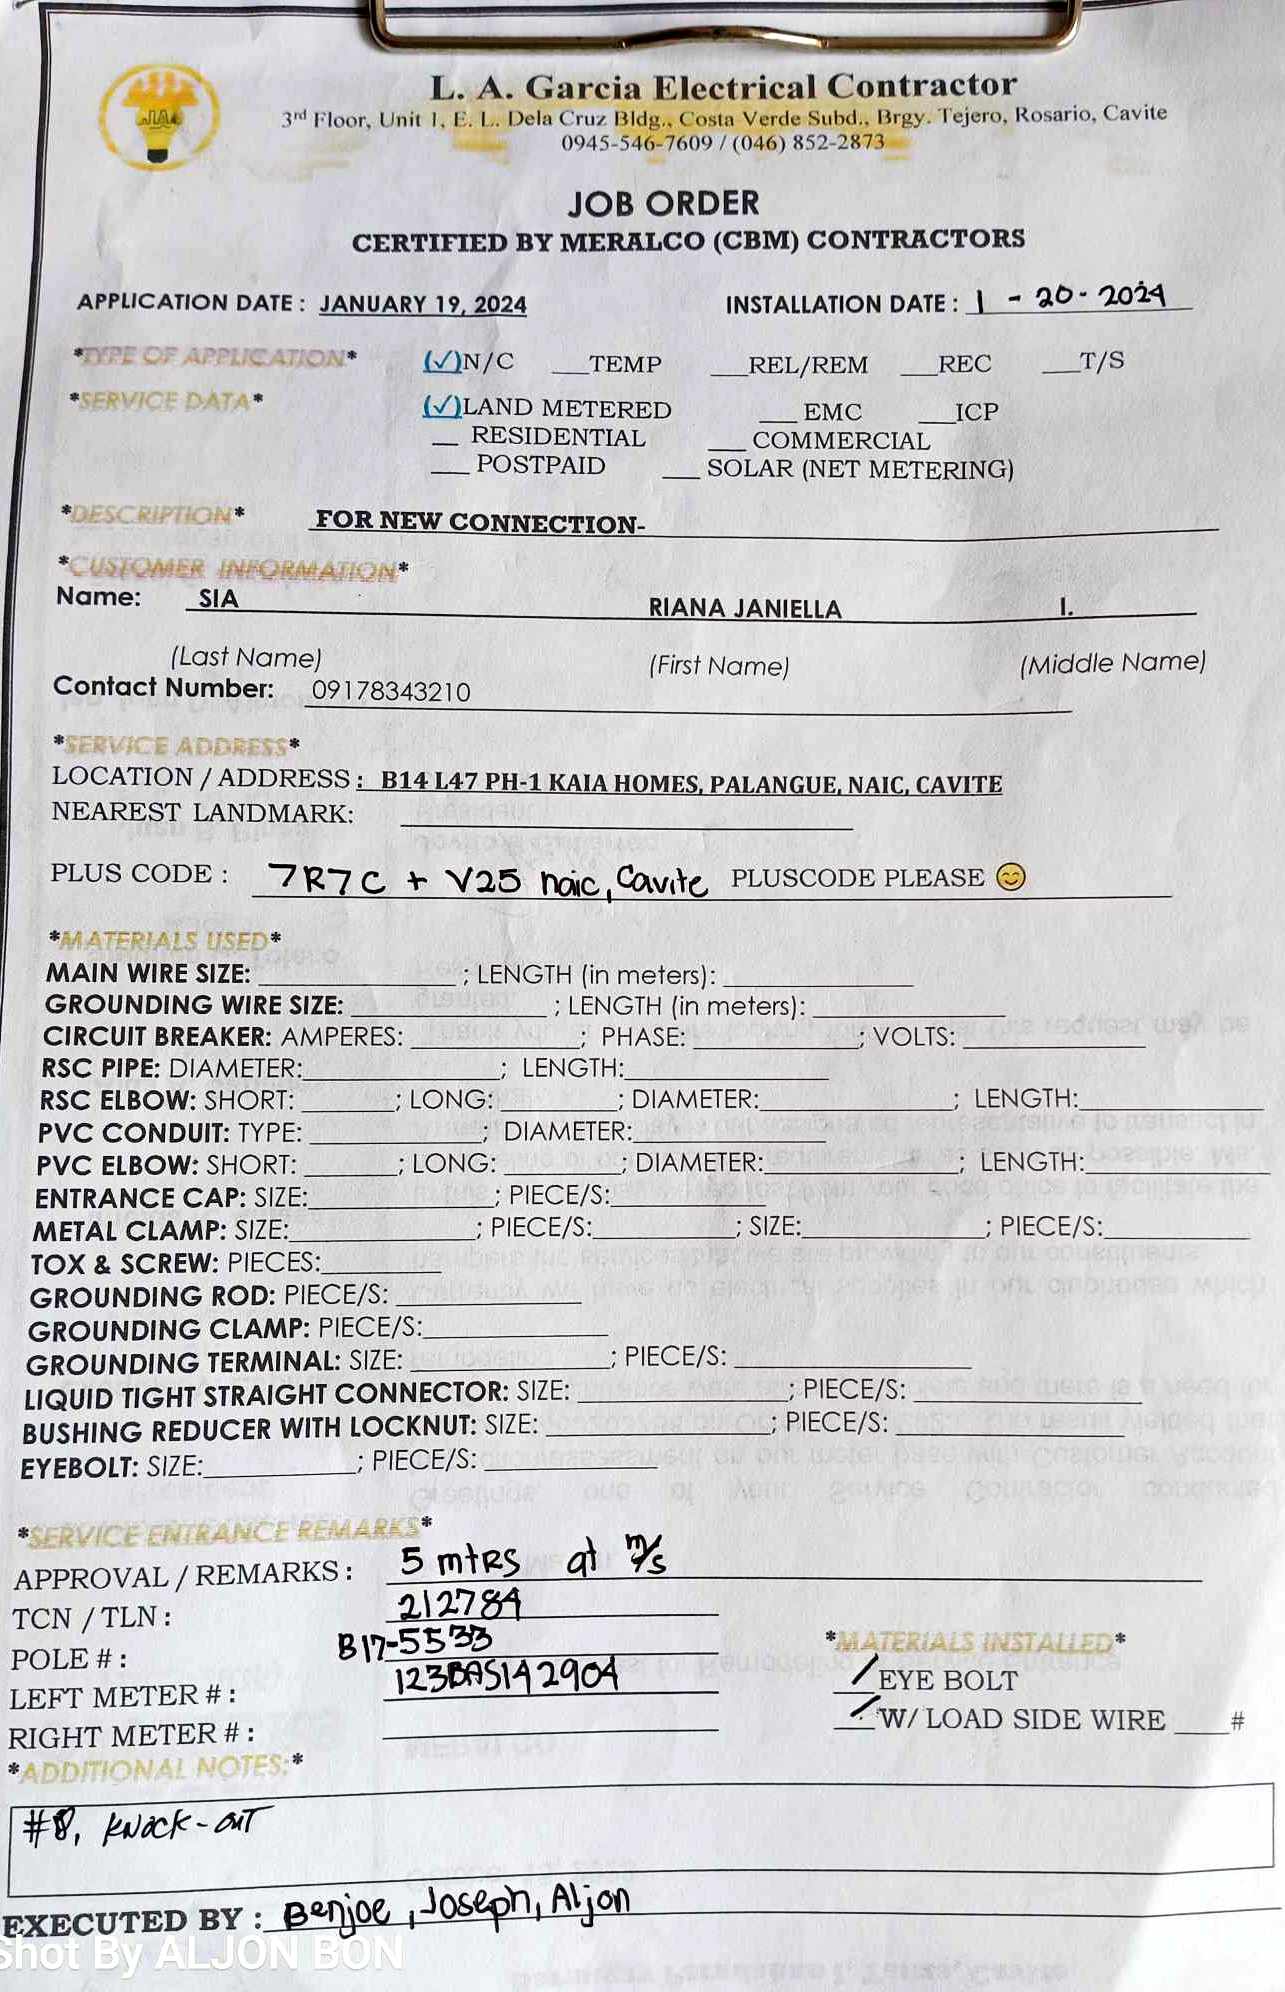 L. A. Garcia Electrical Contractor
3rd Floor, Unit 1, E. L. Dela Cruz Bldg., Costa Verde Subd., Brgy. Tejero, Rosario, Cavite
0945-546-7609 / (046) 852-2873
JOB ORDER
CERTIFIED BY MERALCO (CBM) CONTRACTORS
APPLICATION DATE : JANUARY 19, 2024 INSTALLATION DATE : 1 - 20 - 2024
*TYPE OF APPLICATION* (✓)N/C ___TEMP ___REL/REM ___REC ___T/S
*SERVICE DATA* (✓)LAND METERED ___ EMC ___ICP
__ RESIDENTIAL ___ COMMERCIAL
___ POSTPAID ___ SOLAR (NET METERING)
*DESCRIPTION* FOR NEW CONNECTION-
*CUSTOMER INFORMATION*
Name: SIA RIANA JANIELLA I.
(Last Name) (First Name) (Middle Name)
Contact Number: 09178343210
*SERVICE ADDRESS*
LOCATION / ADDRESS : B14 L47 PH-1 KAIA HOMES, PALANGUE, NAIC, CAVITE
NEAREST LANDMARK: ____________
PLUS CODE : 7R7C + V25 naic, Cavite PLUSCODE PLEASE 😊
*MATERIALS USED*
MAIN WIRE SIZE: ____________ ; LENGTH (in meters): ____________
GROUNDING WIRE SIZE: ____________ ; LENGTH (in meters): ____________
CIRCUIT BREAKER: AMPERES: ____________; PHASE: ____________; VOLTS: ____________
RSC PIPE: DIAMETER:____________; LENGTH:____________
RSC ELBOW: SHORT: ______; LONG: ______; DIAMETER:____________; LENGTH:____________
PVC CONDUIT: TYPE: ____________; DIAMETER:____________
PVC ELBOW: SHORT: ______; LONG: ______; DIAMETER:____________; LENGTH:____________
ENTRANCE CAP: SIZE:____________; PIECE/S:____________
METAL CLAMP: SIZE:____________; PIECE/S:____________; SIZE:____________; PIECE/S:____________
TOX & SCREW: PIECES:____________
GROUNDING ROD: PIECE/S: ____________
GROUNDING CLAMP: PIECE/S:____________
GROUNDING TERMINAL: SIZE: ____________; PIECE/S: ____________
LIQUID TIGHT STRAIGHT CONNECTOR: SIZE: ____________; PIECE/S: ____________
BUSHING REDUCER WITH LOCKNUT: SIZE: ____________; PIECE/S: ____________
EYEBOLT: SIZE:____________; PIECE/S: ____________
*SERVICE ENTRANCE REMARKS*
APPROVAL / REMARKS : 5 mtRS at m/s
TCN / TLN : 212784
POLE # : B17-5533
*MATERIALS INSTALLED*
LEFT METER # : 123BAS142904
/ EYE BOLT
RIGHT METER # : ____________
/ W/ LOAD SIDE WIRE ____#
*ADDITIONAL NOTES:*
#8, KNOCK-OUT
EXECUTED BY : Benjoe, Joseph, Aljon
Shot By ALJON BON